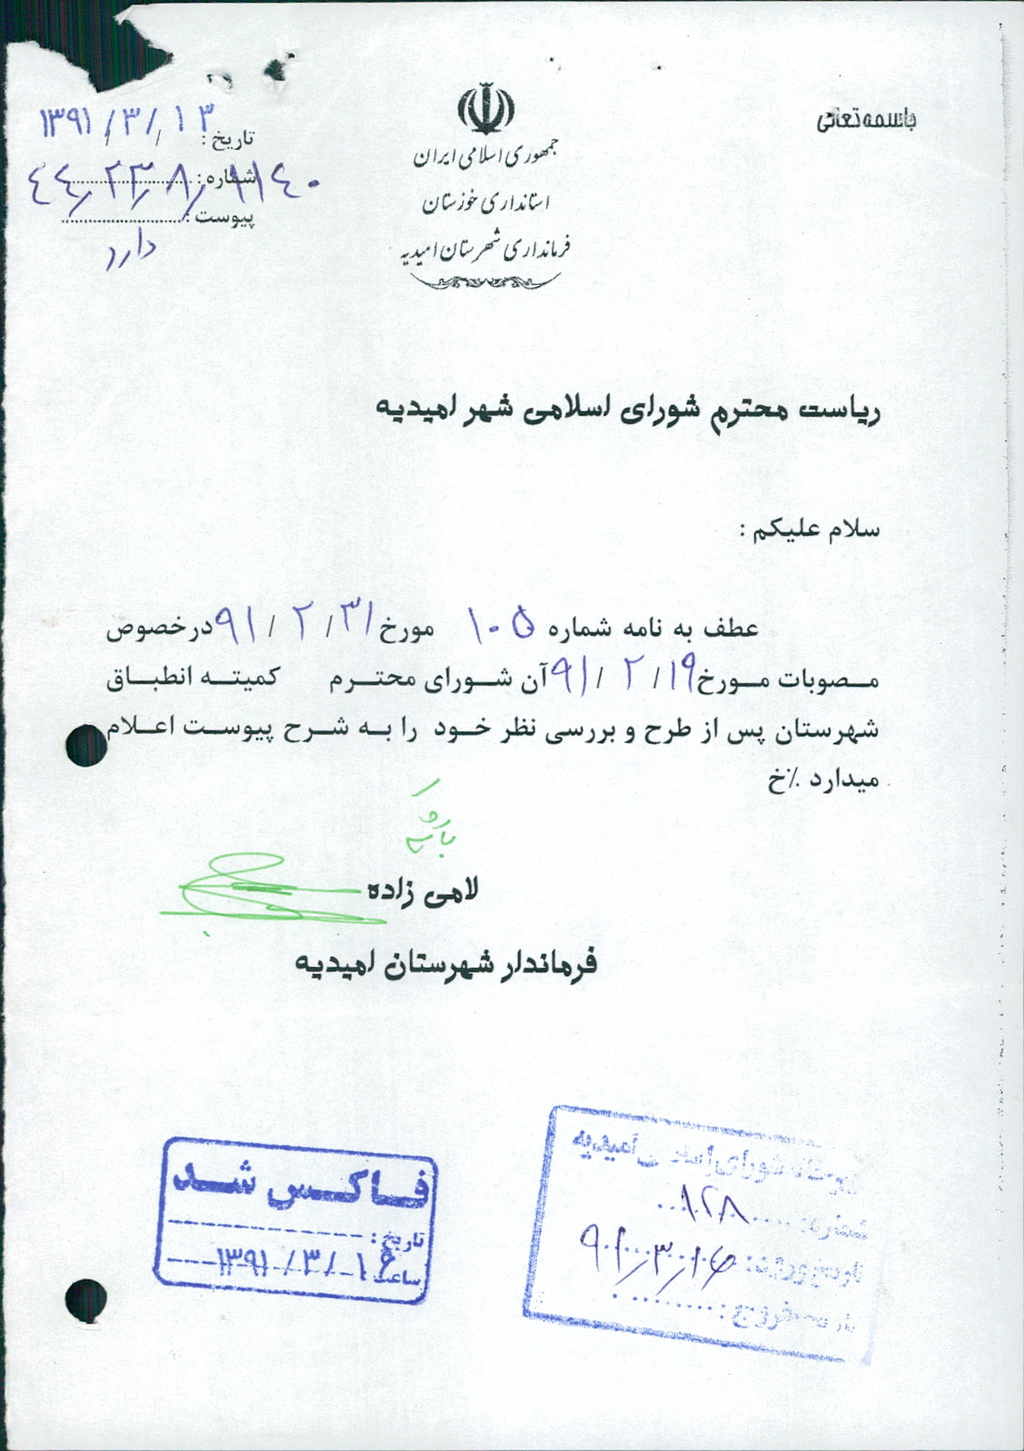 باسمه تعالی
جمهوری اسلامی ایران
استانداری خوزستان
فرمانداری شهرستان امیدیه
تاریخ : ۱۳۹۱/۳/۱۳
شماره :
پیوست :
دارد
ریاست محترم شورای اسلامی شهر امیدیه
سلام علیکم :
عطف به نامه شماره ۱۰۵ مورخ ۹۱/۲/۳۱ درخصوص
مصوبات مورخ ۹۱/۲/۱۹ آن شورای محترم کمیته انطباق
شهرستان پس از طرح و بررسی نظر خود را به شرح پیوست اعلام
میدارد ٪خ
لامی زاده
فرماندار شهرستان امیدیه
فاکس شد
تاریخ :
ساعت ۱۳۹۱/۳/۱۶
امیدیه
شماره: ۱۲۸
تاریخ ورود: ۹۱/۳/۱۶
خروج :